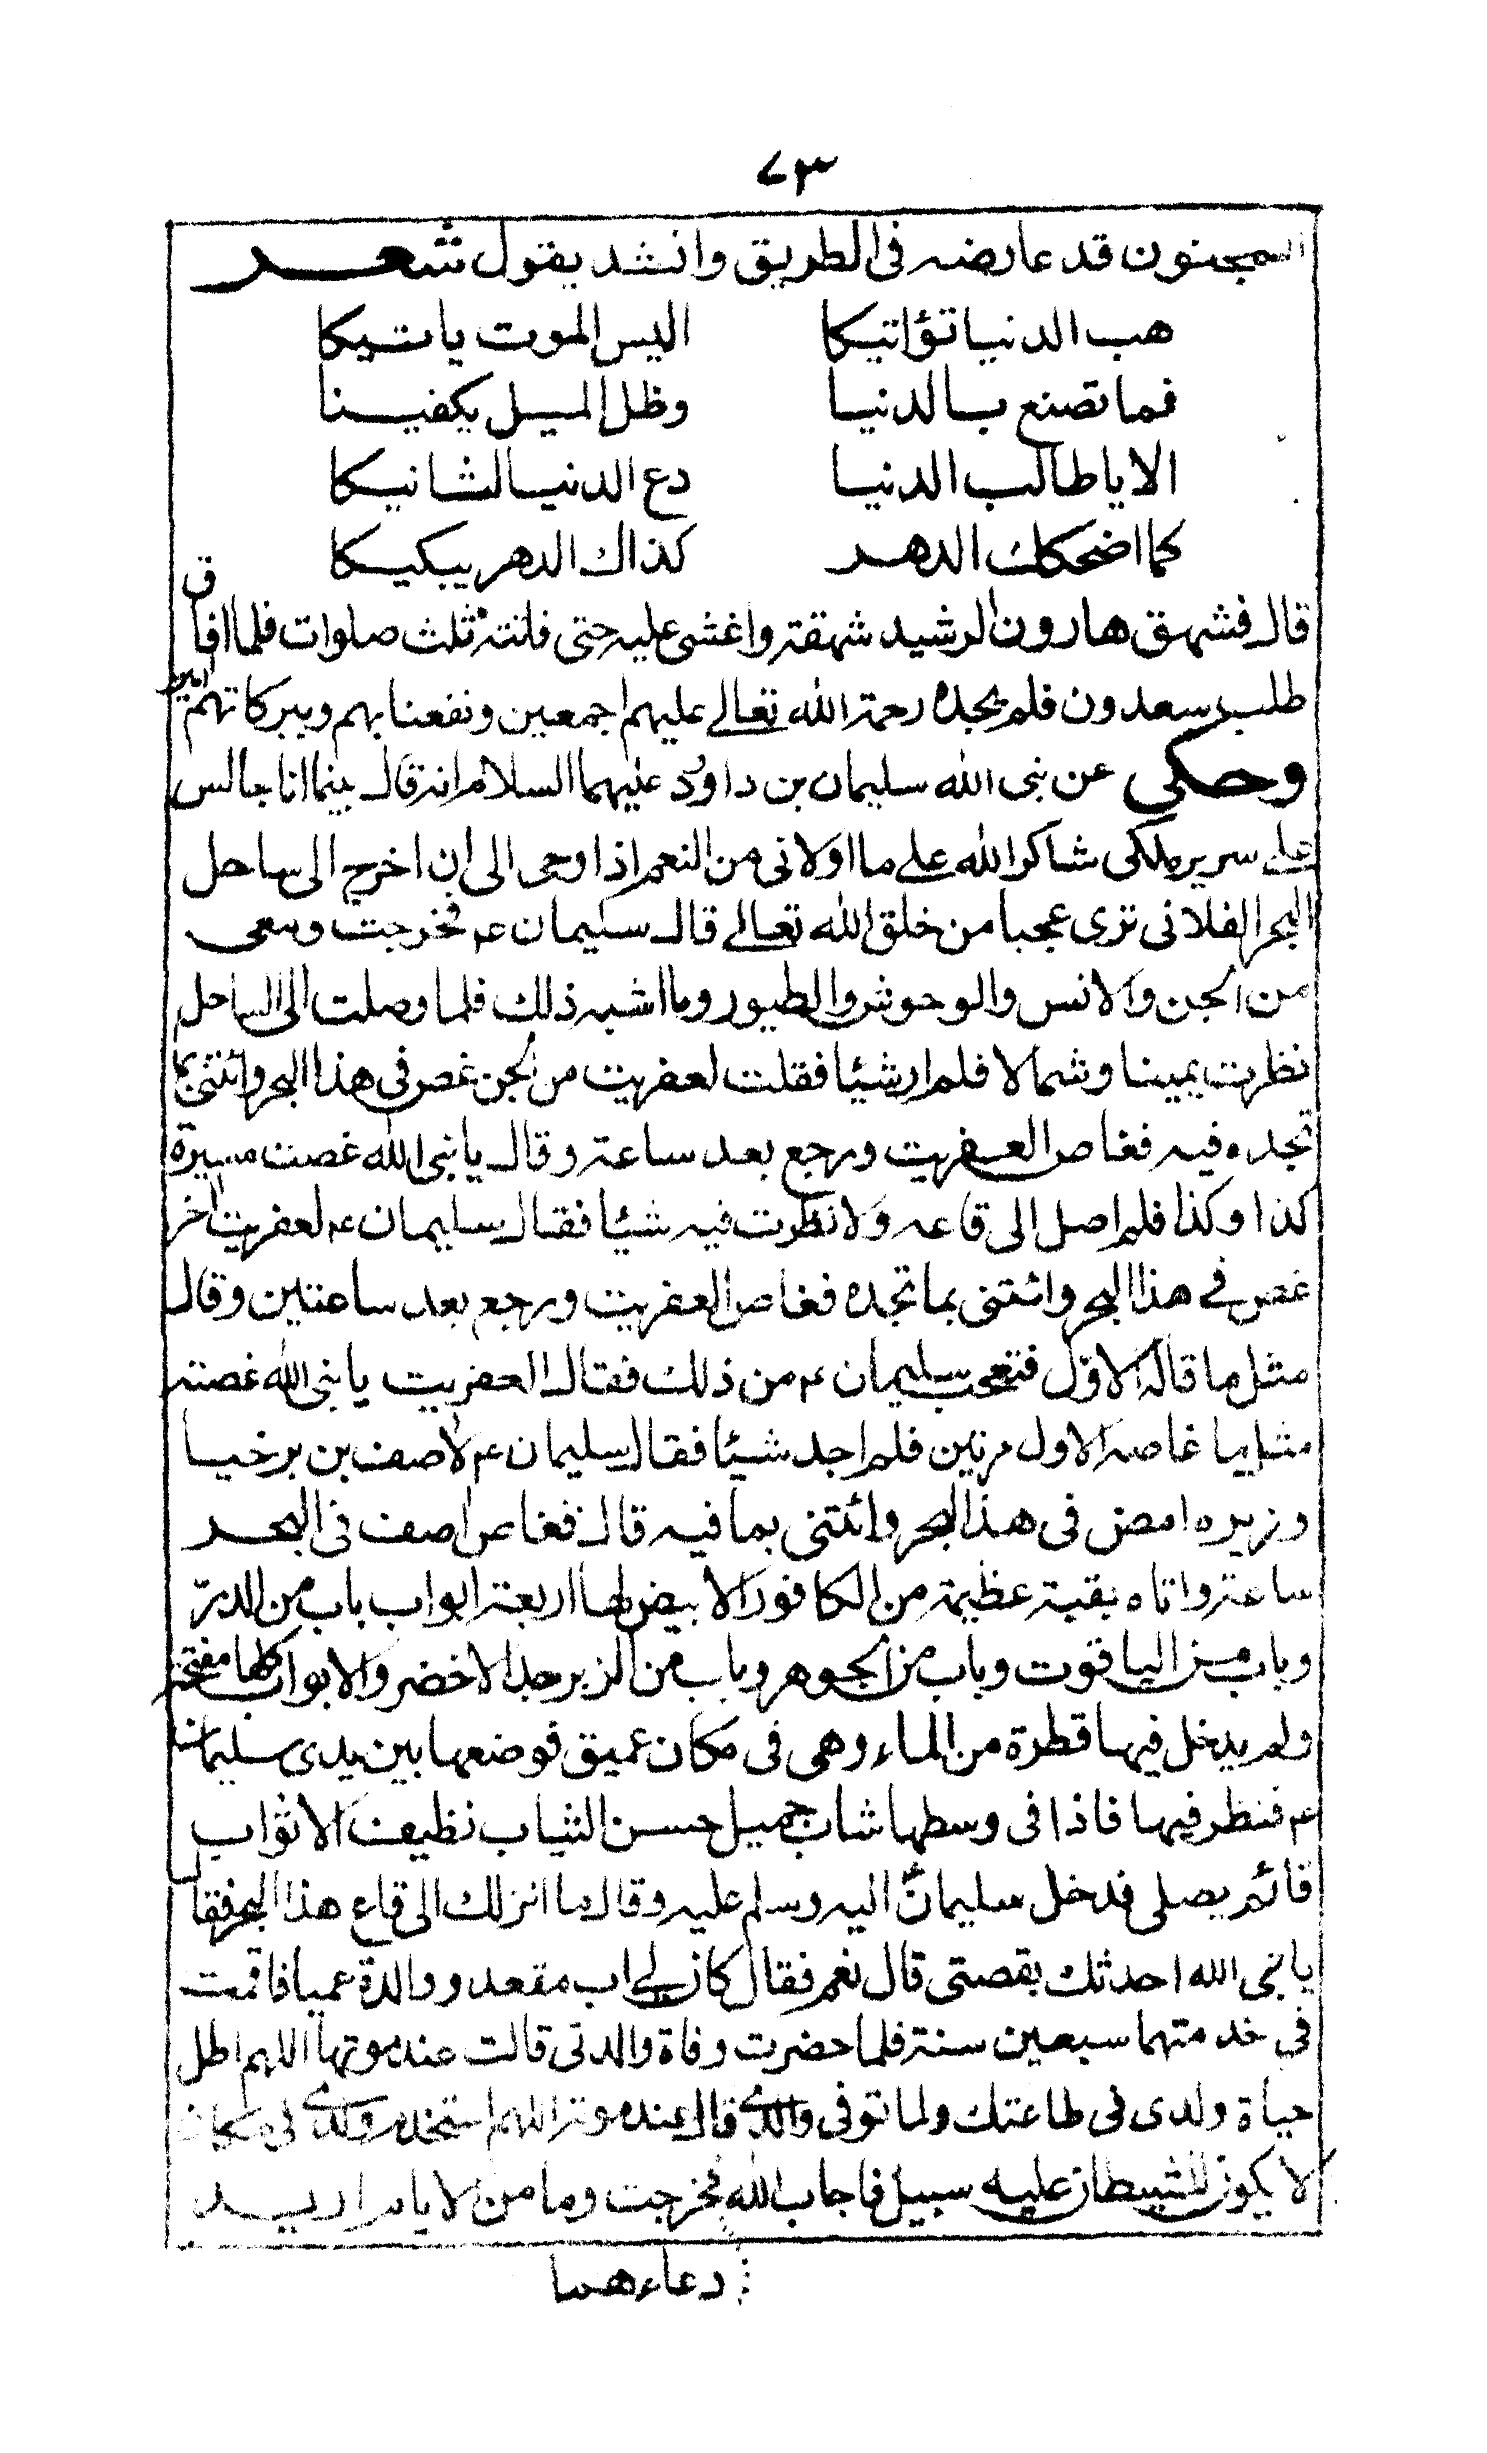 ٧٣
المجنون قد عارضه فى الطريق وانشد يقول شعر
هب الدنيا تؤاتيكا اليس الموت ياتيكا
فما تصنع بالدنيا وظل الميل يكفينا
الا يا طالب الدنيا دع الدنيا لشانيكا
كما اضحكك الدهر كذاك الدهر يبكيكا
قال فشهق هارون الرشيد شهقة واغشى عليه حتى فاتته ثلث صلوات فلما افاق
طلب سعدون فلم يجده رحمة الله تعالى عليهم اجمعين ونفعنا بهم وببركاتهم امين
وحكى عن نبى الله سليمان بن داود عليهما السلام انه قال بينما انا جالس
على سرير ملكى شاكرا لله على ما اولانى من النعم اذ اوحى الى ان اخرج الى ساحل
البحر الفلانى ترى عجبا من خلق الله تعالى قال سليمان ع م فخرجت ومعى
من الجن والانس والوحوش والطيور وما اشبه ذلك فلما وصلت الى الساحل
نظرت يمينا وشمالا فلم ار شيئا فقلت لعفريت من الجن غص فى هذا البحر وائتنى بما
تجده فيه فغاص العفريت ورجع بعد ساعة وقال يا نبى الله غصت مسيرة
كذا وكذا فلم اصل الى قاعه ولا نظرت فيه شيئا فقال سليمان ع م لعفريت اخر
غص فى هذا البحر وائتنى بما تجده فغاص العفريت ورجع بعد ساعتين وقال
مثل ما قاله الاول فتعجب سليمان ع م من ذلك فقال العفريت يا نبى الله غصته
مثل ما غاصه الاول مرتين فلم اجد شيئا فقال سليمان ع م لاصف بن برخيا
وزيره امض فى هذا البحر وائتنى بما فيه قال فغاص اصف فى البحر
ساعة واتاه بقبة عظيمة من الكافور الابيض لها اربعة ابواب باب من الدرّ
وباب من الياقوت وباب من الجوهر وباب من الزبرجد الاخضر والابواب كلها مفتحة
ولم يدخل فيها قطرة من الماء وهى فى مكان عميق فوضعها بين يدى سليمان
ع م فنظر فيها فاذا فى وسطها شاب جميل حسن الثياب نظيف الاثواب
قائم يصلى فدخل سليمان ع م اليه وسلم عليه وقال ما انزلك الى قاع هذا البحر فقال
يا نبى الله احدثك بقصتى قال نعم فقال كان لى اب مقعد ووالدة عميا فاقمت
فى خدمتهما سبعين سنة فلما حضرت وفاة والدتى قالت عند موتها اللهم اطل
حياة ولدى فى طاعتك ولما توفى والدى قال عند موته اللهم استخدم ولدى فى مكان
لا يكون للشيطان عليه سبيل فاجاب الله فخرجت وما من الايام اريد
دعاءهما